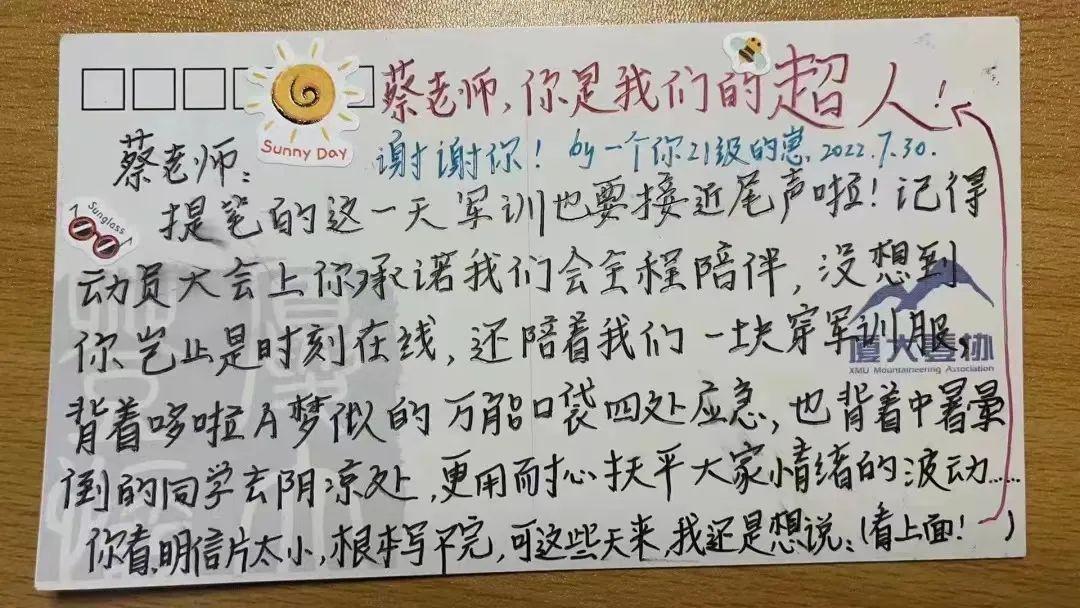 蔡老师，你是我们的超人！
Sunny Day
谢谢你！by一个你21级的崽.2022.7.30.
蔡老师：
Sunglass
提笔的这一天军训也要接近尾声啦！记得
动员大会上你承诺我们会全程陪伴，没想到
你岂止是时刻在线，还陪着我们一块穿军训服，
厦大登协
XMU Mountaineering Association
背着哆啦A梦似的万能口袋四处应急，也背着中暑晕
倒的同学去阴凉处，更用耐心抚平大家情绪的波动……
你看，明信片太小，根本写不完，可这些天来，我还是想说：（看上面！）